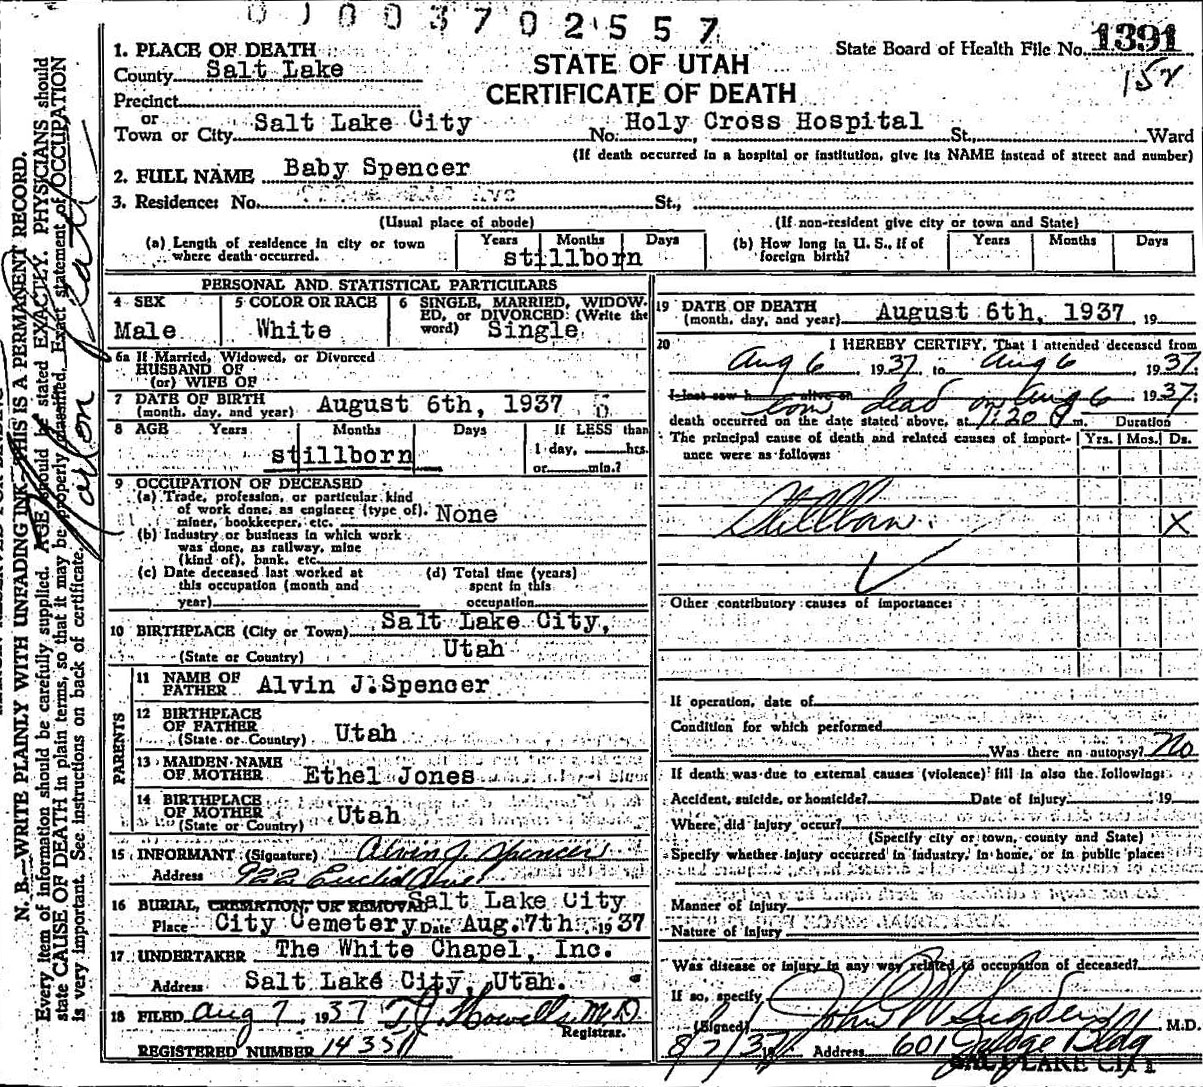 0100370 2557
1391
State Board of Health File No.
152
STATE OF UTAH
CERTIFICATE OF DEATH
1. PLACE OF DEATH
County Salt Lake
Precinct
or
Town or City Salt Lake City No. Holy Cross Hospital St., Ward
(If death occurred in a hospital or institution, give its NAME instead of street and number)
2. FULL NAME Baby Spencer
3. Residence: No. St.,
(Usual place of abode) (If non-resident give city or town and State)
(a) Length of residence in city or town where death occurred. Years Months Days
stillborn
(b) How long in U. S., if of foreign birth? Years Months Days
PERSONAL AND STATISTICAL PARTICULARS
4 SEX
Male
5 COLOR OR RACE
White
6 SINGLE, MARRIED, WIDOW-
ED, or DIVORCED: (Write the
word) Single
6a If Married, Widowed, or Divorced
HUSBAND OF
(or) WIFE OF
7 DATE OF BIRTH
(month, day, and year) August 6th, 1937
8 AGE Years Months Days If LESS than
1 day, hrs.
or min.?
stillborn
9 OCCUPATION OF DECEASED
(a) Trade, profession, or particular kind
of work done, as engineer (type of),
miner, bookkeeper, etc. None
(b) Industry or business in which work
was done, as railway, mine
(kind of), bank, etc.
(c) Date deceased last worked at
this occupation (month and
year)
(d) Total time (years)
spent in this
occupation
10 BIRTHPLACE (City or Town) Salt Lake City,
(State or Country) Utah
PARENTS
11 NAME OF
FATHER Alvin J. Spencer
12 BIRTHPLACE
OF FATHER
(State or Country) Utah
13 MAIDEN NAME
OF MOTHER Ethel Jones
14 BIRTHPLACE
OF MOTHER
(State or Country) Utah
15 INFORMANT (Signature) Alvin J. Spencer
Address 922 Euclid Ave
16 BURIAL, CREMATION, OR REMOVAL Salt Lake City
Place City Cemetery Date Aug. 7th 1937
17 UNDERTAKER The White Chapel, Inc.
Address Salt Lake City, Utah.
18 FILED Aug 7 1937 T J Howells M.D.
Registrar.
REGISTERED NUMBER 1435
19 DATE OF DEATH
(month, day, and year) August 6th, 1937, 19
20 I HEREBY CERTIFY, That I attended deceased from
Aug 6 1937 to Aug 6 1937;
I last saw h alive on born dead on Aug 6 1937;
death occurred on the date stated above, at 7:20 P m. Duration
The principal cause of death and related causes of import-
ance were as follows: Yrs. Mos. Ds.
Stillborn. X
Other contributory causes of importance:
If operation, date of
Condition for which performed
Was there an autopsy? No
If death was due to external causes (violence) fill in also the following:
Accident, suicide, or homicide? Date of injury 19
Where did injury occur?
(Specify city or town, county and State)
Specify whether injury occurred in industry, in home, or in public place:
Manner of injury
Nature of injury
Was disease or injury in any way related to occupation of deceased?
If so, specify
(Signed) John W Sugden M.D.
8/7/37 19 Address 601 Judge Bldg
SALT LAKE CITY
N. B.—WRITE PLAINLY WITH UNFADING INK—THIS IS A PERMANENT RECORD.
Every item of information should be carefully supplied. AGE should be stated EXACTLY. PHYSICIANS should
state CAUSE OF DEATH in plain terms, so that it may be properly classified. Exact statement of OCCUPATION
is very important. See instructions on back of certificate.